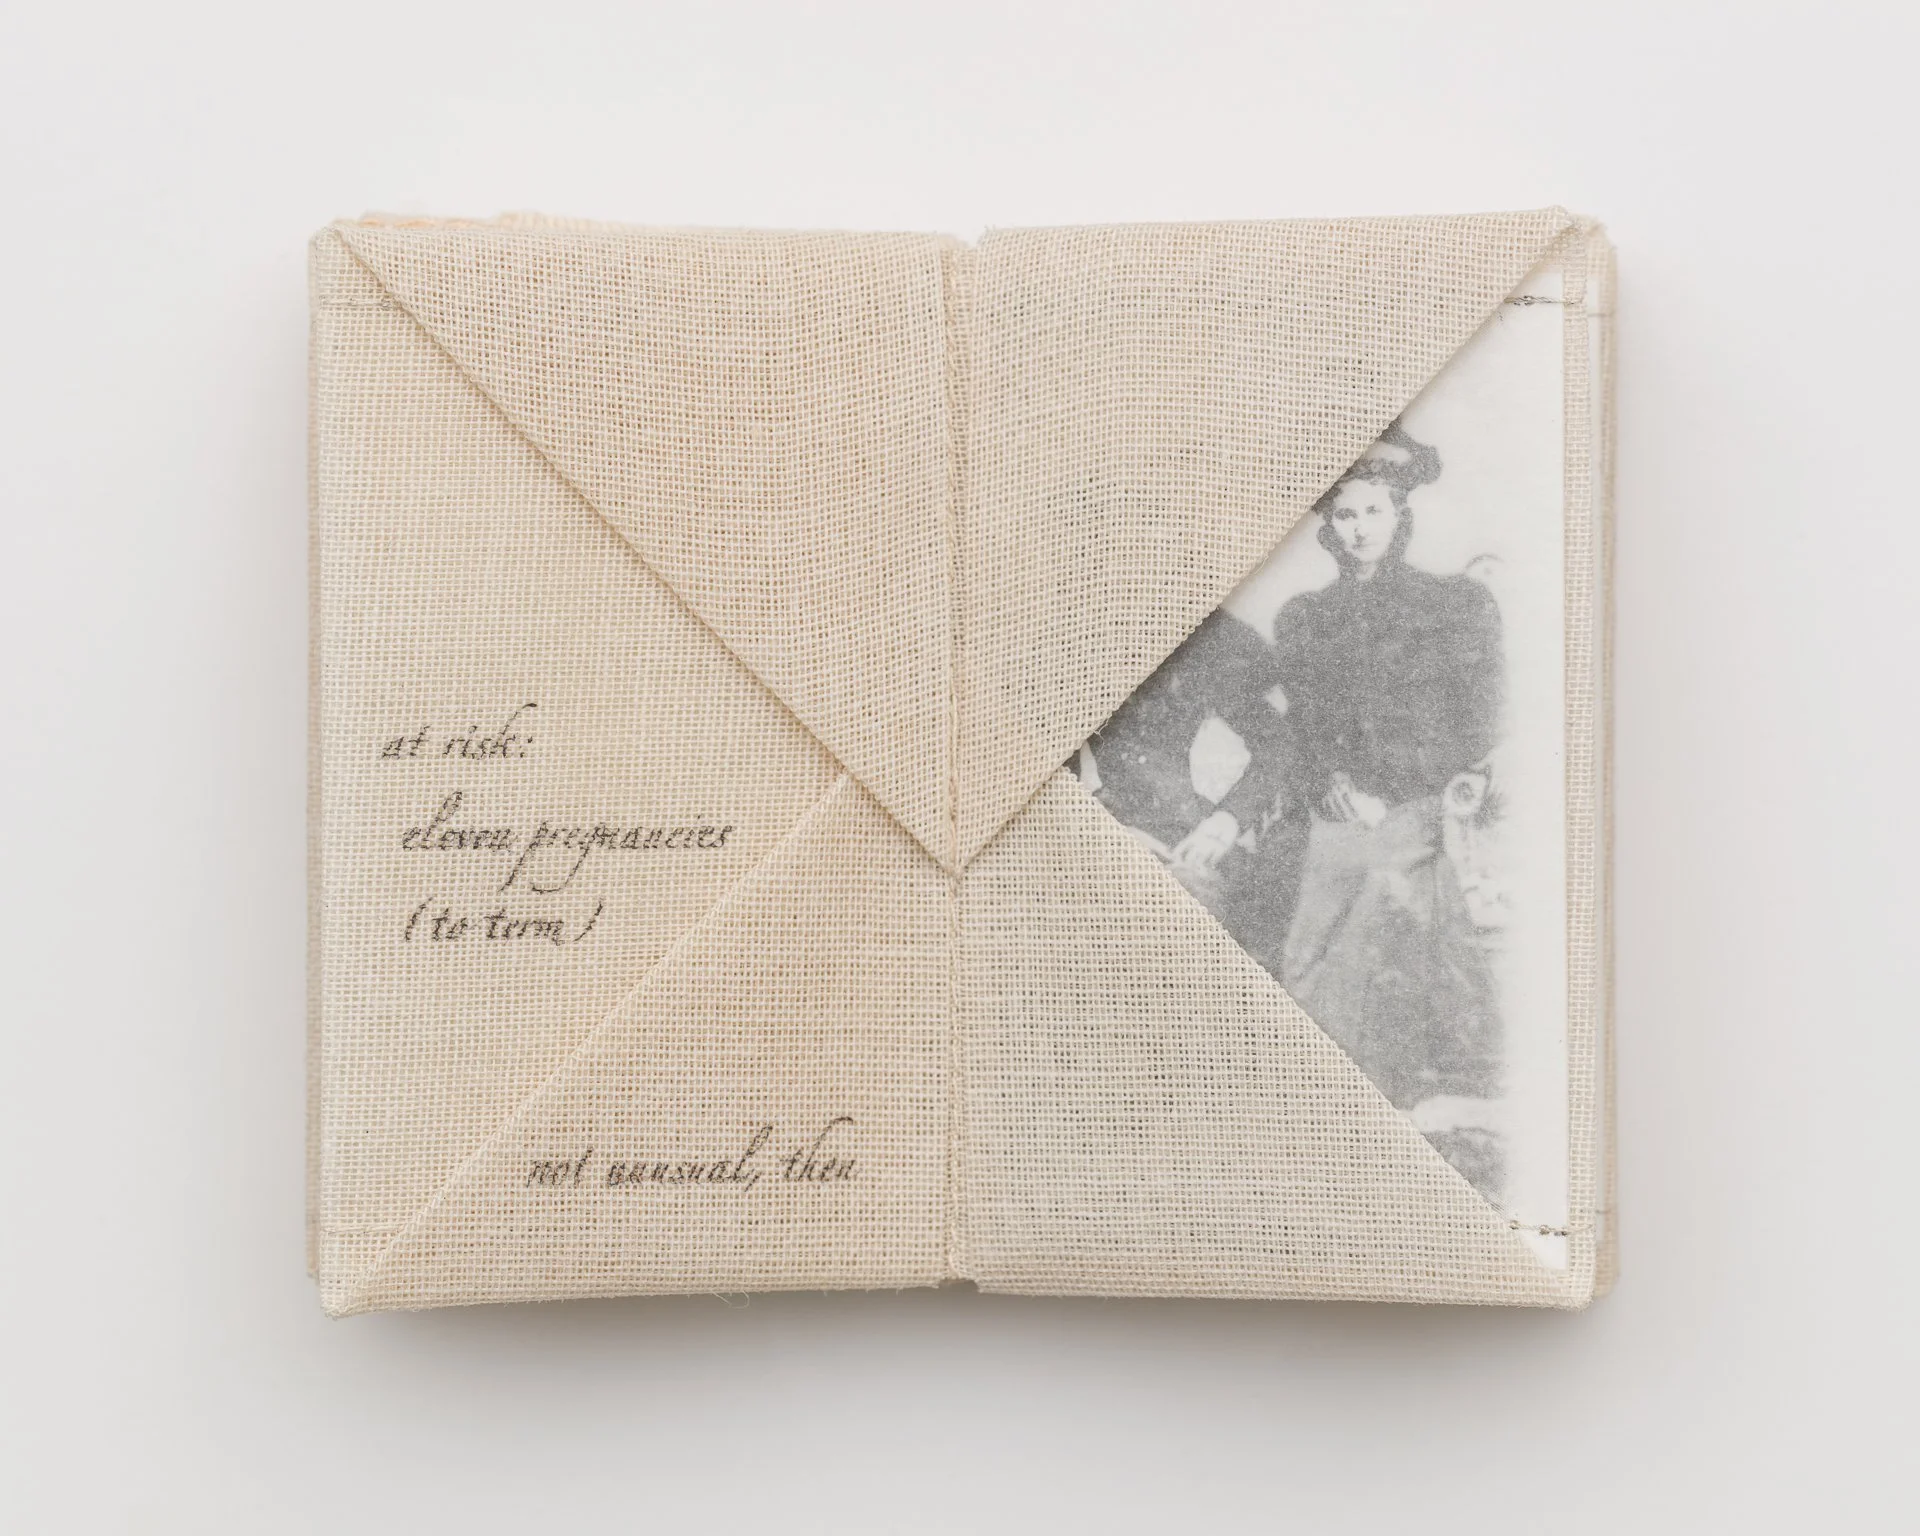 at risk:
eleven pregnancies
(to term)
not unusual, then